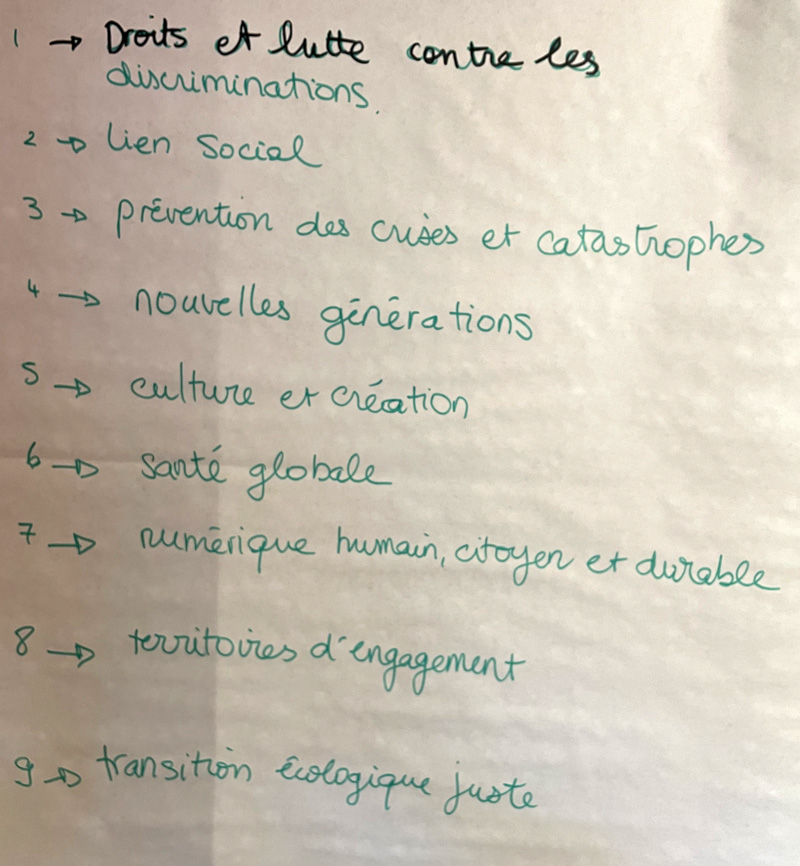 1 → Droits et lutte contre les
discriminations.
2 → lien social
3 → prévention des crises et catastrophes
4 → nouvelles générations
5 → culture et création
6 → santé globale
7 → numérique humain, citoyen et durable
8 → territoires d'engagement
9 → transition écologique juste